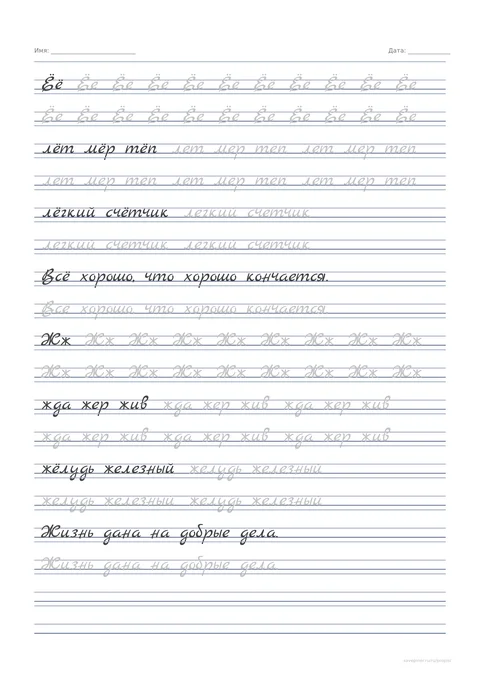 Имя: Дата:
Ёё Ёе Ёе Ёе Ёе Ёе Ёе Ёе Ёе Ёе Ёе
Ёе Ёе Ёе Ёе Ёе Ёе Ёе Ёе Ёе Ёе Ёе
лёт мёр тёп лет мер теп лет мер теп
лет мер теп лет мер теп лет мер теп
лёгкий счётчик легкии счетчик
легкии счетчик легкии счетчик
Всё хорошо, что хорошо кончается.
Все хорошо что хорошо кончается
Жж Жж Жж Жж Жж Жж Жж Жж Жж
Жж Жж Жж Жж Жж Жж Жж Жж Жж
жда жер жив жда жер жив жда жер жив
жда жер жив жда жер жив жда жер жив
жёлудь железный желудь железныи
желудь железныи желудь железныи
Жизнь дана на добрые дела.
Жизнь дана на добрые дела